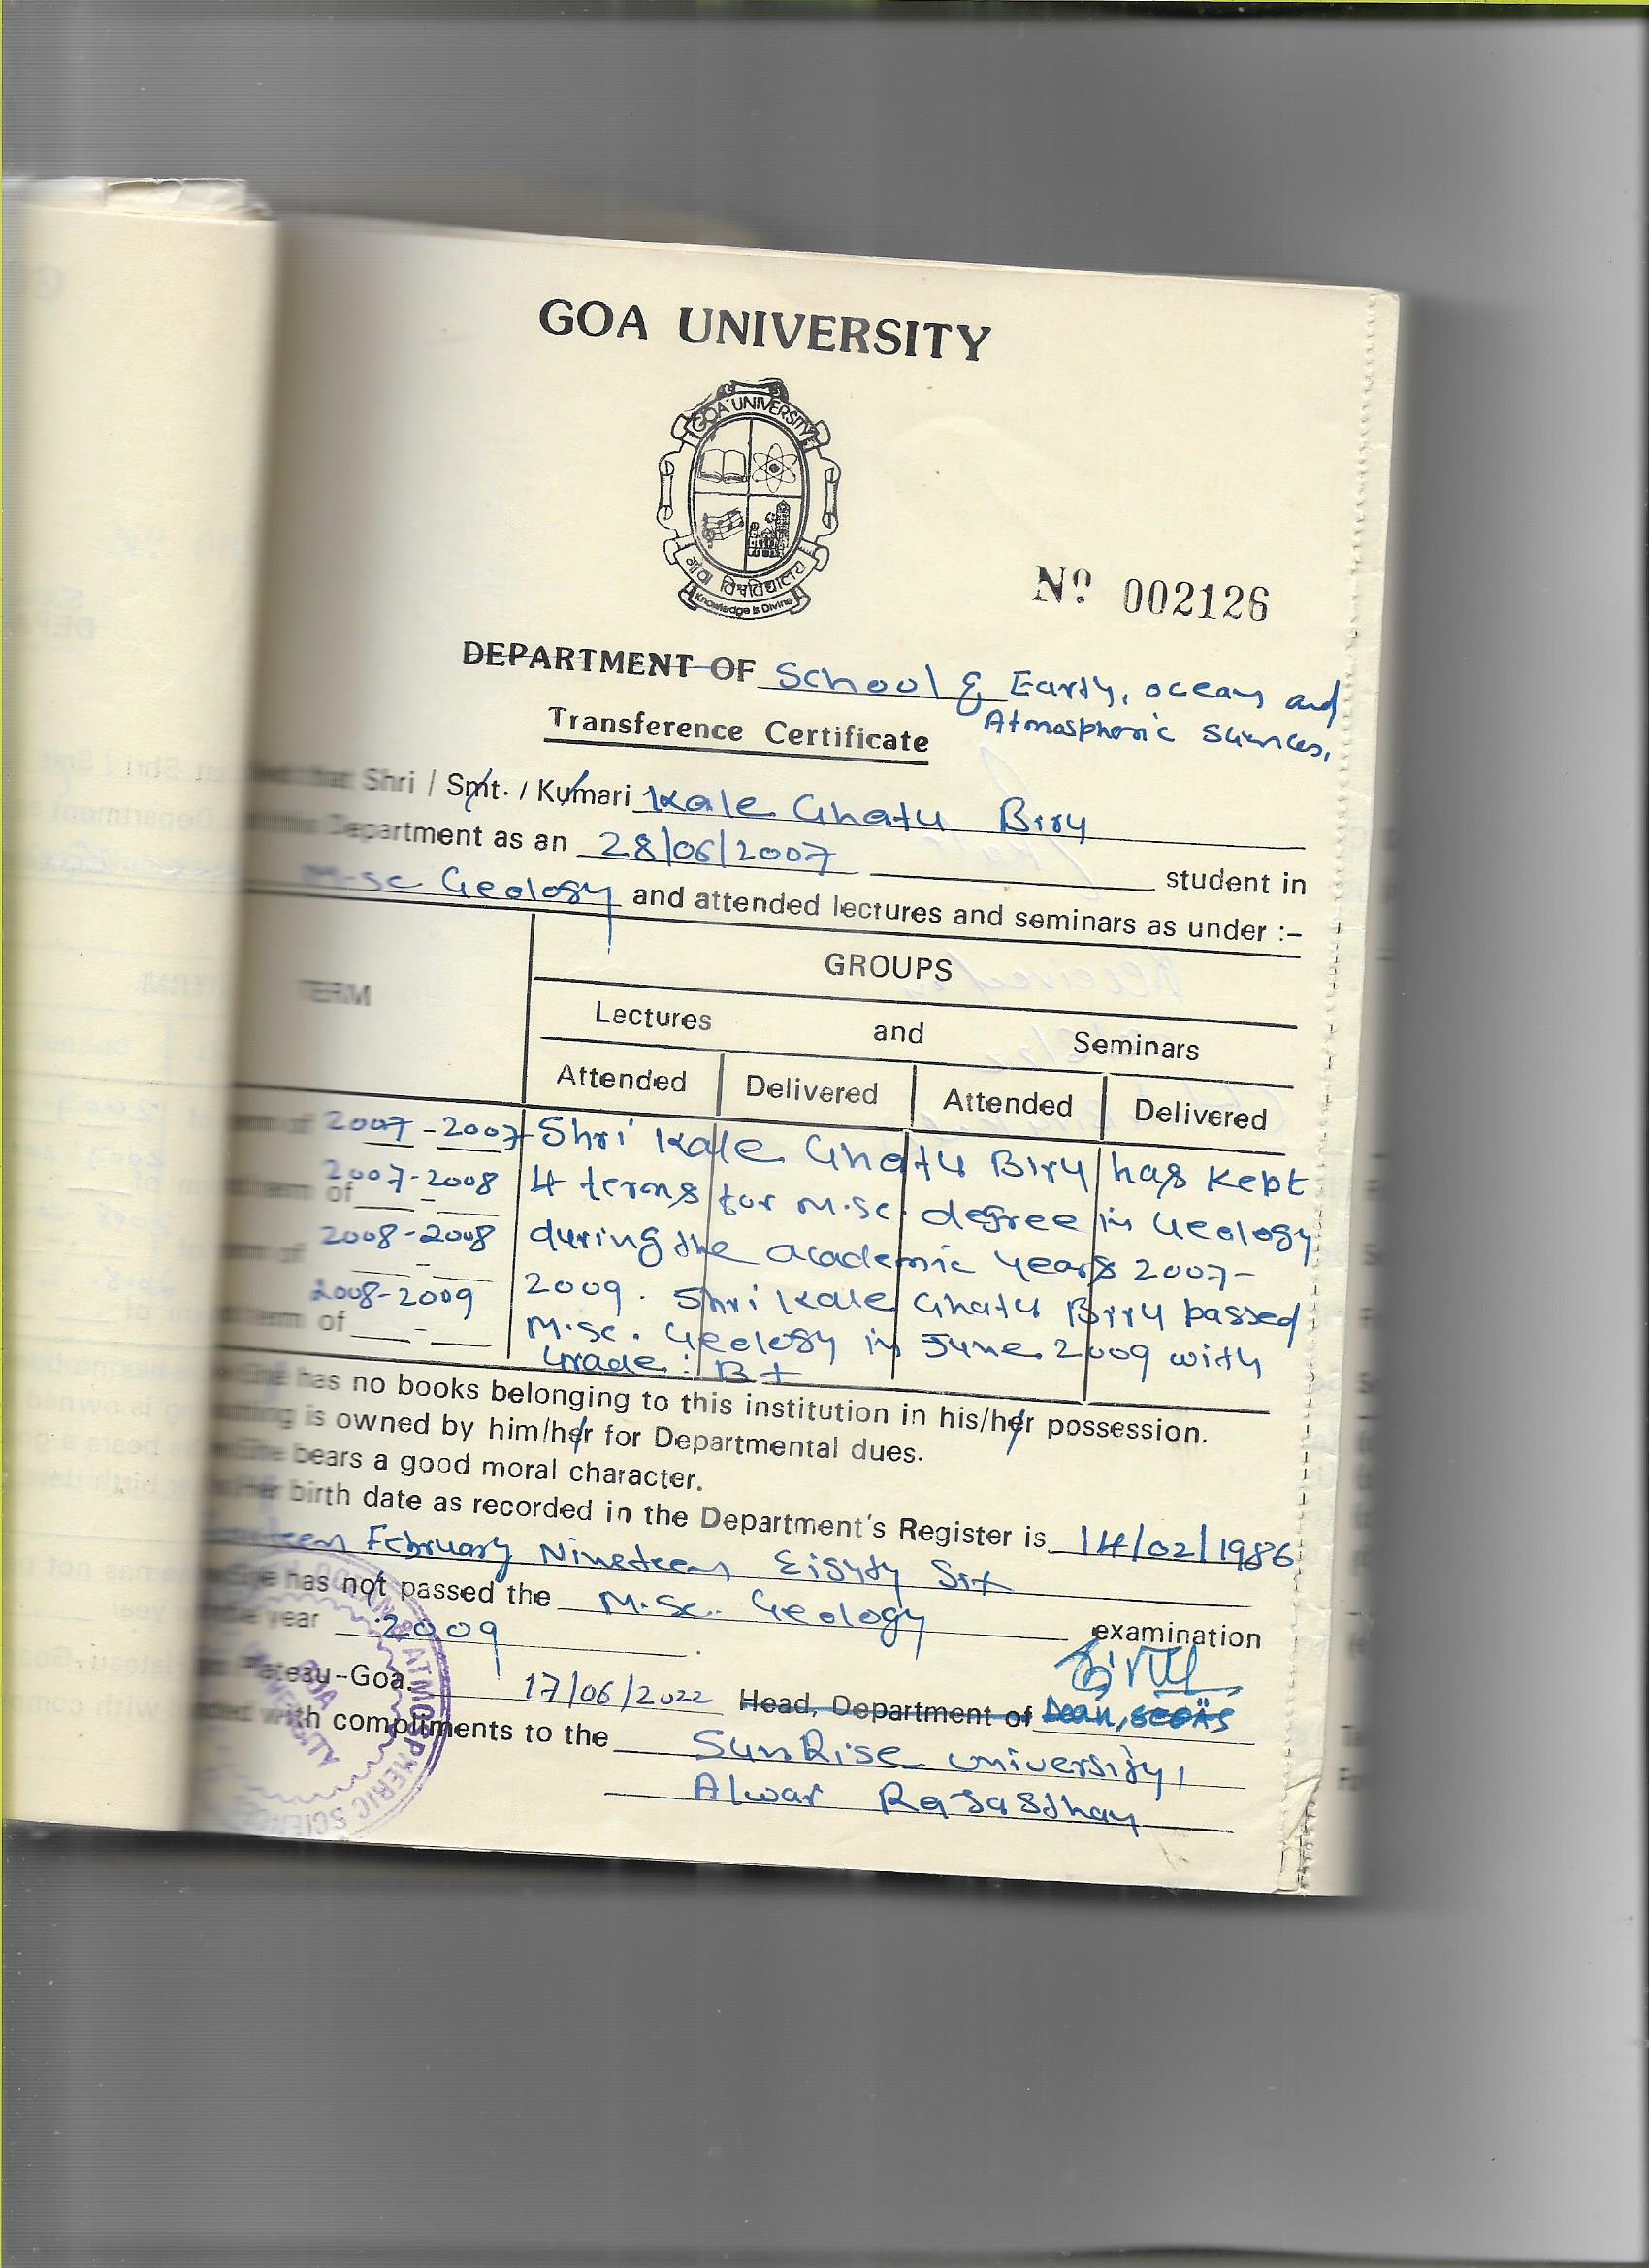 GOA UNIVERSITY
GOA UNIVERSITY
गोंवा विश्वविद्यालय
Knowledge is Divine
Nº 002126
DEPARTMENT OF School of Earth, ocean and
Atmospheric Sciences,
Transference Certificate
that Shri / Smt. / Kumari Kale Ghatu Biru
Department as an 28/06/2007 student in
M.sc. Geology and attended lectures and seminars as under :-
TERM
GROUPS
Lectures and Seminars
Attended Delivered Attended Delivered
term of 2007 - 2007
2007-2008
term of
2008-2008
term of
2008-2009
term of
Shri Kale Ghatu Biru has kept
4 terms for M.sc. degree in Geology
during the academic years 2007-
2009. Shri Kale Ghatu Biru passed
M.sc. Geology in June 2009 with
Grade : B+
She has no books belonging to this institution in his/her possession.
nothing is owned by him/her for Departmental dues.
She bears a good moral character.
Her birth date as recorded in the Department's Register is 14/02/1986
February Nineteen Eighty Six
She has not passed the M.Sc. Geology examination
the year 2009
Plateau-Goa. 17/06/2022 Head, Department of Dean, SEOAS
with compliments to the SunRise University,
Alwar Rajasthan
GOA UNIVERSITY